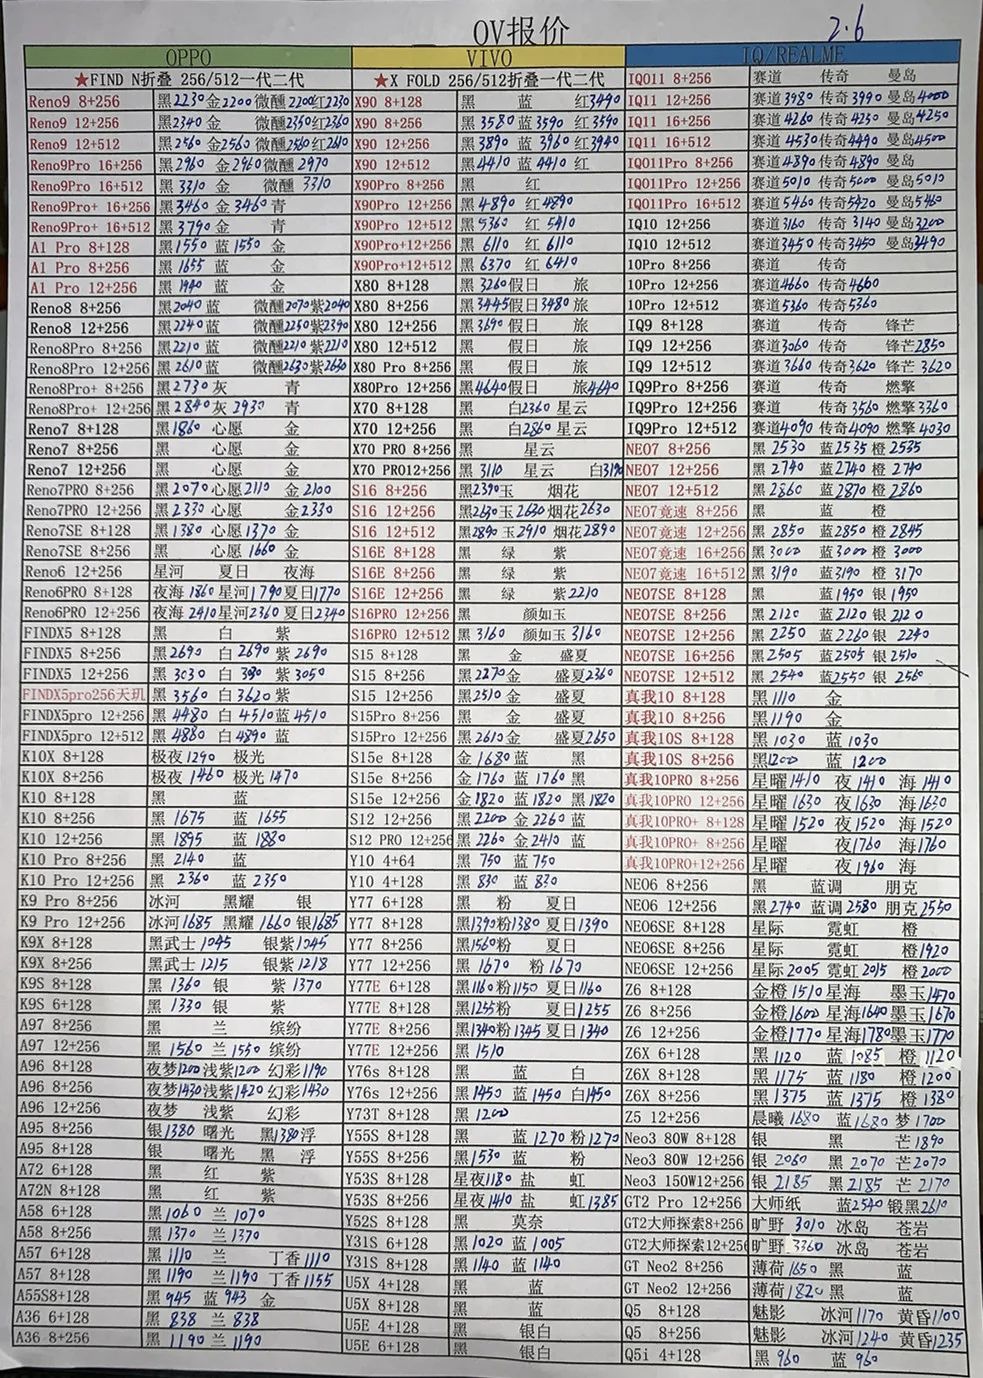 OV报价 2.6
OPPO VIVO IQ/REALME
★FIND N折叠 256/512一代二代 ★X FOLD 256/512折叠一代二代 IQ011 8+256 赛道 传奇 曼岛
Reno9 8+256 黑2230金2200微醺2200红2230 X90 8+128 黑 蓝 红3490 IQ11 12+256 赛道3980 传奇3990 曼岛4000
Reno9 12+256 黑2340金 微醺2350红2360 X90 8+256 黑3580 蓝3590 红3590 IQ11 16+256 赛道4260 传奇4250 曼岛4250
Reno9 12+512 黑2560 金2560微醺2560红2610 X90 12+256 黑3890 蓝3960 红3940 IQ11 16+512 赛道4530传奇4490 曼岛4500
Reno9Pro 16+256 黑2960 金2960微醺2970 X90 12+512 黑4410 蓝4410 红 IQ011Pro 8+256 赛道4890传奇4890 曼岛
Reno9Pro 16+512 黑3310 金 微醺3310 X90Pro 8+256 黑 红 IQ011Pro 12+256 赛道5010 传奇5000 曼岛5010
Reno9Pro+ 16+256 黑3460 金3460青 X90Pro 12+256 黑4890 红4890 IQ011Pro 16+512 赛道5460 传奇5420 曼岛5460
Reno9Pro+ 16+512 黑3790 金 青 X90Pro 12+512 黑5360 红5410 IQ10 12+256 赛道3160 传奇3140 曼岛3200
A1 Pro 8+128 黑1550 蓝1550 金 X90Pro+12+256 黑6110 红6110 IQ10 12+512 赛道3450 传奇3450 曼岛3490
A1 Pro 8+256 黑1655 蓝 金 X90Pro+12+512 黑6370 红6410 10Pro 8+256 赛道 传奇
A1 Pro 12+256 黑1940 蓝 金 X80 8+128 黑3260假日 旅 10Pro 12+256 赛道4660 传奇4660
Reno8 8+256 黑2040 蓝 微醺2070紫2040 X80 8+256 黑3445假日3480 旅 10Pro 12+512 赛道5360 传奇5360
Reno8 12+256 黑2240 蓝 微醺2250紫2390 X80 12+256 黑3690 假日 旅 IQ9 8+128 赛道 传奇 锋芒
Reno8Pro 8+256 黑2210 蓝 微醺2210 紫2210 X80 12+512 黑 假日 旅 IQ9 12+256 赛道3060 传奇 锋芒2850
Reno8Pro 12+256 黑2610 蓝 微醺2630紫2630 X80 Pro 8+256 黑 假日 旅 IQ9 12+512 赛道3660 传奇3620 锋芒3620
Reno8Pro+ 8+256 黑2730 灰 青 X80Pro 12+256 黑4640假日 旅4640 IQ9Pro 8+256 赛道 传奇 燃擎
Reno8Pro+ 12+256 黑2840灰2930 青 X70 8+128 黑 白2360 星云 IQ9Pro 12+256 赛道 传奇3560 燃擎3360
Reno7 8+128 黑1860 心愿 金 X70 12+256 黑 白2860 星云 IQ9Pro 12+512 赛道4090 传奇4090 燃擎4030
Reno7 8+256 黑 心愿 金 X70 PRO 8+256 黑 星云 NEO7 8+256 黑2530 蓝2535 橙2535
Reno7 12+256 黑 心愿 金 X70 PRO12+256 黑3110 星云 白3190 NEO7 12+256 黑2740 蓝2740 橙2740
Reno7PRO 8+256 黑2070心愿2110 金2100 S16 8+256 黑2390玉 烟花 NEO7 12+512 黑2860 蓝2870 橙2860
Reno7PRO 12+256 黑2330 心愿 金2330 S16 12+256 黑2630玉2630烟花2630 NEO7竞速 8+256 黑 蓝 橙
Reno7SE 8+128 黑1380 心愿1370 金 S16 12+512 黑2890 玉2910 烟花2890 NEO7竞速 12+256 黑2850 蓝2850 橙2845
Reno7SE 8+256 黑 心愿1660 金 S16E 8+128 黑 绿 紫 NEO7竞速 16+256 黑3000 蓝3000 橙3000
Reno6 12+256 星河 夏日 夜海 S16E 8+256 黑 绿 紫 NEO7竞速 16+512 黑3190 蓝3190 橙3170
Reno6PRO 8+128 夜海1860星河1790夏日1770 S16E 12+256 黑 绿 紫2210 NEO7SE 8+128 黑 蓝1950 银1950
Reno6PRO 12+256 夜海2410星河2360 夏日2340 S16PRO 12+256 黑 颜如玉 NEO7SE 8+256 黑2120 蓝2120银2120
FINDX5 8+128 黑 白 紫 S16PRO 12+512 黑3160 颜如玉3160 NEO7SE 12+256 黑2250 蓝2260 银2240
FINDX5 8+256 黑2690 白2690 紫2690 S15 8+128 黑 金 盛夏 NEO7SE 16+256 黑2505 蓝2505 银2510
FINDX5 12+256 黑3030 白 紫3050 S15 8+256 黑2270金 盛夏2360 NEO7SE 12+512 黑2540 蓝2550 银2560
FINDX5pro256天玑 黑3560 白3620紫 S15 12+256 黑2510 金 盛夏 真我10 8+128 黑1110 金
FINDX5pro 12+256 黑4480 白4510蓝4510 S15Pro 8+256 黑 金 盛夏 真我10 8+256 黑1190 金
FINDX5pro 12+512 黑4880 白4890 蓝 S15Pro 12+256 黑2610金 盛夏2650 真我10S 8+128 黑1030 蓝1030
K10X 8+128 极夜1290 极光 S15e 8+128 金1680蓝 黑 真我10S 8+256 黑1200 蓝1200
K10X 8+256 极夜1460 极光1470 S15e 8+256 金1760 蓝1760黑 真我10PRO 8+256 星曜1410 夜1410 海1410
K10 8+128 黑 蓝 S15e 12+256 金1820 蓝1820 黑1820 真我10PRO 12+256 星曜1630 夜1630 海1630
K10 8+256 黑1675 蓝1655 S12 12+256 黑2200 金2260 蓝 真我10PRO+ 8+128 星曜1520 夜1520 海1520
K10 12+256 黑1895 蓝1880 S12 PRO 12+256 黑2260 金2410 蓝 真我10PRO+ 8+256 星曜 夜1760 海1760
K10 Pro 8+256 黑2140 蓝 Y10 4+64 黑750 蓝750 真我10PRO+12+256 星曜 夜1960 海
K10 Pro 12+256 黑2360 蓝2350 Y10 4+128 黑830 蓝830 NEO6 8+256 黑 蓝调 朋克
K9 Pro 8+256 冰河 黑耀 银 Y77 6+128 黑 粉 夏日 NEO6 12+256 黑2740 蓝调2580 朋克2550
K9 Pro 12+256 冰河1685 黑耀1660银1685 Y77 8+128 黑1390粉1380 夏日1390 NEO6SE 8+128 星际 霓虹 橙
K9X 8+128 黑武士1045 银紫1045 Y77 8+256 黑1560粉 夏日 NEO6SE 8+256 星际 霓虹 橙1920
K9X 8+256 黑武士1215 银紫1218 Y77 12+256 黑1670 粉1670 NEO6SE 12+256 星际2005 霓虹2015 橙2000
K9S 8+128 黑1360 银 紫1370 Y77E 6+128 黑1160粉1150 夏日1160 Z6 8+128 金橙1510星海 墨玉1470
K9S 6+128 黑1330 银 紫 Y77E 8+128 黑1255粉 夏日1255 Z6 8+256 金橙1600 星海1640墨玉1670
A97 8+256 黑 兰 缤纷 Y77E 8+256 黑1340粉1345 夏日1340 Z6 12+256 金橙1770 星海1780墨玉1770
A97 12+256 黑1560 兰1550 缤纷 Y77E 12+256 黑1510 Z6X 6+128 黑1120 蓝1085 橙1120
A96 8+128 夜梦1200浅紫1200 幻彩1190 Y76s 8+128 黑 蓝 白 Z6X 8+128 黑1175 蓝1180 橙1200
A96 8+256 夜梦1430浅紫1420 幻彩1430 Y76s 12+256 黑1450 蓝1450 白1450 Z6X 8+256 黑1375 蓝1375 橙1380
A96 12+256 夜梦 浅紫 幻彩 Y73T 8+128 黑1200 Z5 12+256 晨曦1680 蓝1680 梦1700
A95 8+256 银1380 曙光 黑1380浮 Y55S 8+128 黑 蓝1270 粉1270 Neo3 80W 8+128 银 黑 芒1890
A95 8+128 银 曙光 黑 浮 Y55S 8+256 黑1530 蓝 粉 Neo3 80W 12+256 银2060 黑2070 芒2070
A72 6+128 黑 红 紫 Y53S 8+128 星夜1180 盐 虹 Neo3 150W12+256 银2185 黑2185 芒2170
A72N 8+128 黑 红 紫 Y53S 8+256 星夜1410 盐 虹1385 GT2 Pro 12+256 大师纸 蓝2540 锻黑2610
A58 6+128 黑1060 兰1070 Y52S 8+128 黑 莫奈 GT2大师探索8+256 旷野3010 冰岛 苍岩
A58 8+256 黑1370 兰1370 Y31S 6+128 黑1020 蓝1005 GT2大师探索12+256 旷野3360 冰岛 苍岩
A57 6+128 黑1110 兰 丁香1110 Y31S 8+128 黑1140 蓝1140 GT Neo2 8+256 薄荷1650 黑 蓝
A57 8+128 黑1190 兰1190 丁香1155 U5X 4+128 黑 蓝 GT Neo2 12+256 薄荷1820黑 蓝
A55S8+128 黑945 蓝943 金 U5X 8+128 黑 蓝 Q5 8+128 魅影 冰河1170 黄昏1100
A36 6+128 黑838 兰838 U5E 4+128 黑 银白 Q5 8+256 魅影 冰河1240 黄昏1235
A36 8+256 黑1190 兰1190 U5E 6+128 黑 银白 Q5i 4+128 黑960 蓝960